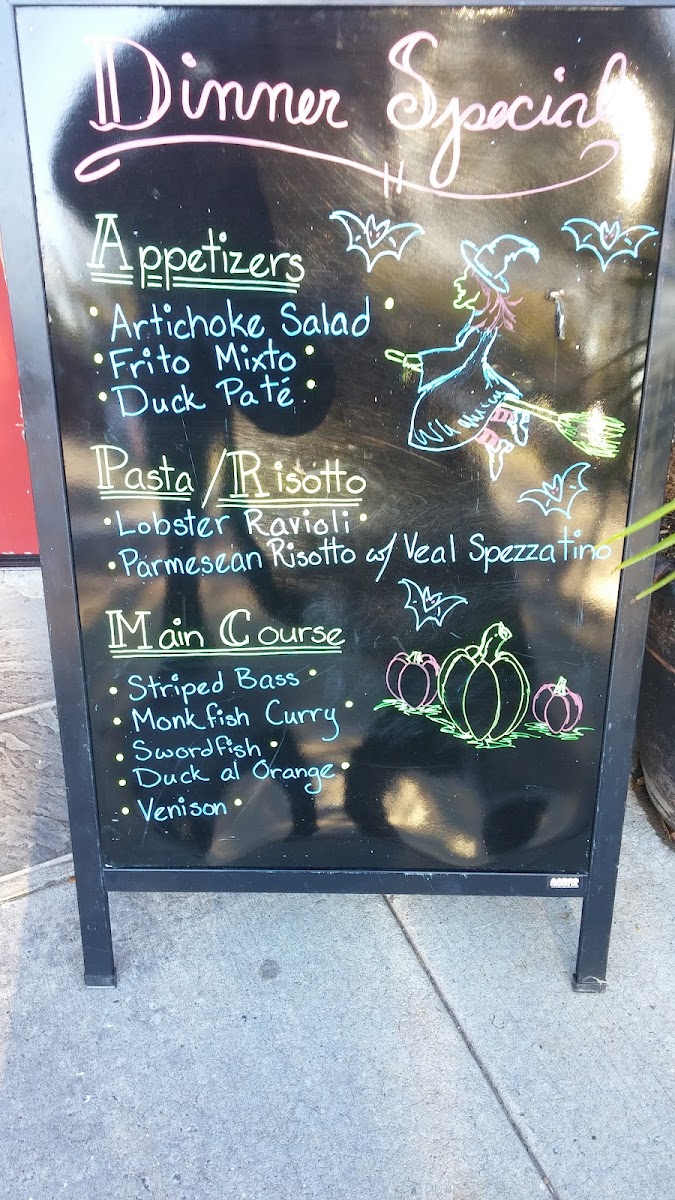 Dinner Special
Appetizers
• Artichoke Salad •
• Frito Mixto •
• Duck Paté •
Pasta / Risotto
• Lobster Ravioli •
• Parmesean Risotto w/ Veal Spezzatino
Main Course
• Striped Bass •
• Monkfish Curry •
• Swordfish •
• Duck al Orange •
• Venison •